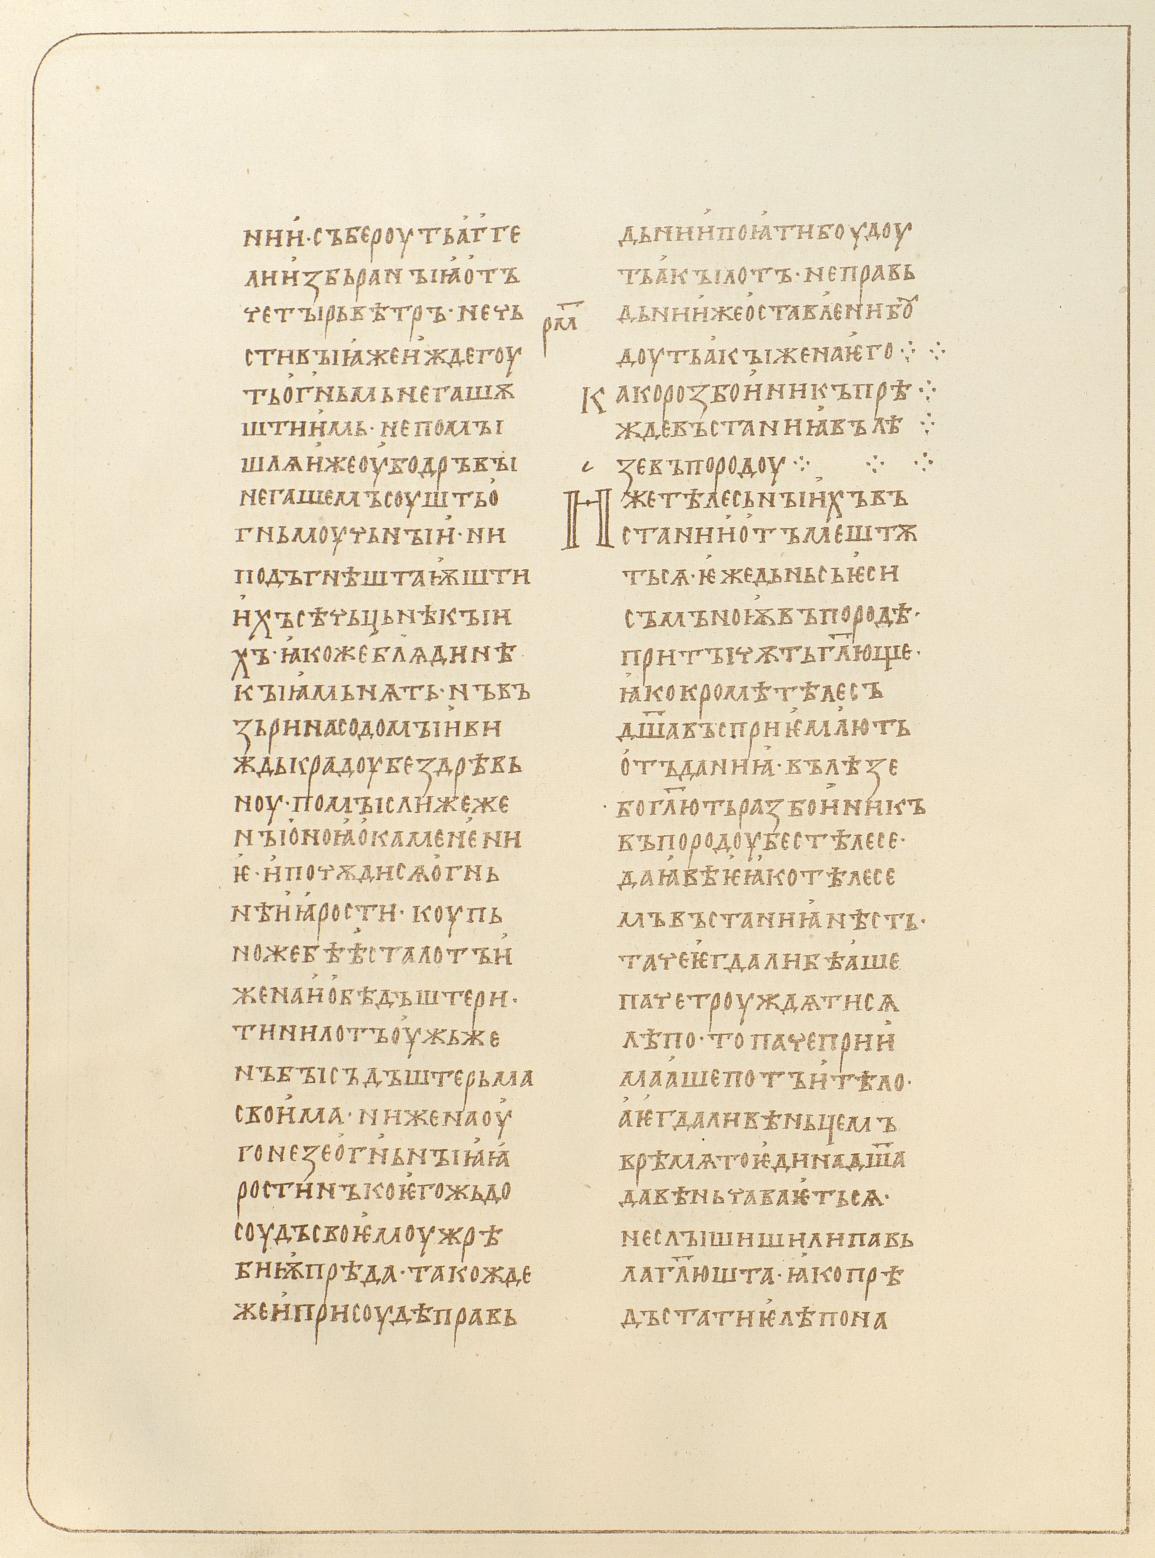 нии·събероутьаг҄ге
лиизбьраныѩотъ
четырьвѣтръ·нечь
стивыѩжеиждегоу
тьог҄ньмьнегашѫ
штиимь·непомꙑ
шлѧижеоубодръвꙑ
негашемъсоуштьо
гньмоучьныи·ни
подъгнѣштаѭшти
ихъсѣчьцьнѣкꙑи
хъ·ꙗкожеблѧдинѣ
кꙑꙗмьнѧть·нъвъ
зьринасодомꙑиви
ждькрадоубездрѣвь
ноу·помꙑслижеже
нꙑоноꙗокаменени
ѥ·ипочѫдисѧогнь
нѣиꙗрости·коупь
ножебѣѣсталотъи
женаиобѣдъштери·
тинилотъоужьже
нъбꙑсъдъштерьма
своима·ниженаоу
гонезеог҄ньнꙑꙗꙗ
ростинъкоѥгожьдо
соудъсвоѥмоужрѣ
биѭпрѣда·такожде
жеиприсоудѣправь
дьниипоꙗтибоудоу
тьакꙑлотъ·неправь
дьниижеоставлениб꙽оу
доутьакꙑженаѥго ⁘ ⁘
рм҃
Какорозбоиникъпрѣ ⁘
ждевъстаниꙗвълѣ ⁘
зевъпородоу ⁘ ⁘ ⁘
Ижетѣлесьнꙑихъвъ
станииотъмештѫ
тьсѧ·ѥжедьньсьѥси
съмъноѭвъпородѣ·
притꙑчѫтьгл҃юще·
ꙗкокромѣтѣлесъ
дш҃авъсприѥмлють
отъданиꙗ·вълѣзе
·богл҃ютьразбоиникъ
въпородоубестѣлесе·
даꙗвѣѥꙗкотѣлесе
мъвъстаниꙗнѣсть·
тачеѥгдалибѣаше
пачетроуждѧтисѧ
лѣпо·топачеприи
маашепотъитѣло·
аѥгдаливѣньцемъ
врѣмѧтоѥдинадш҃а
давѣньчаваѥтьсѧ·
неслꙑшишилипавь
лагл҃юшта·ꙗкопрѣ
дъстатиѥлѣпона